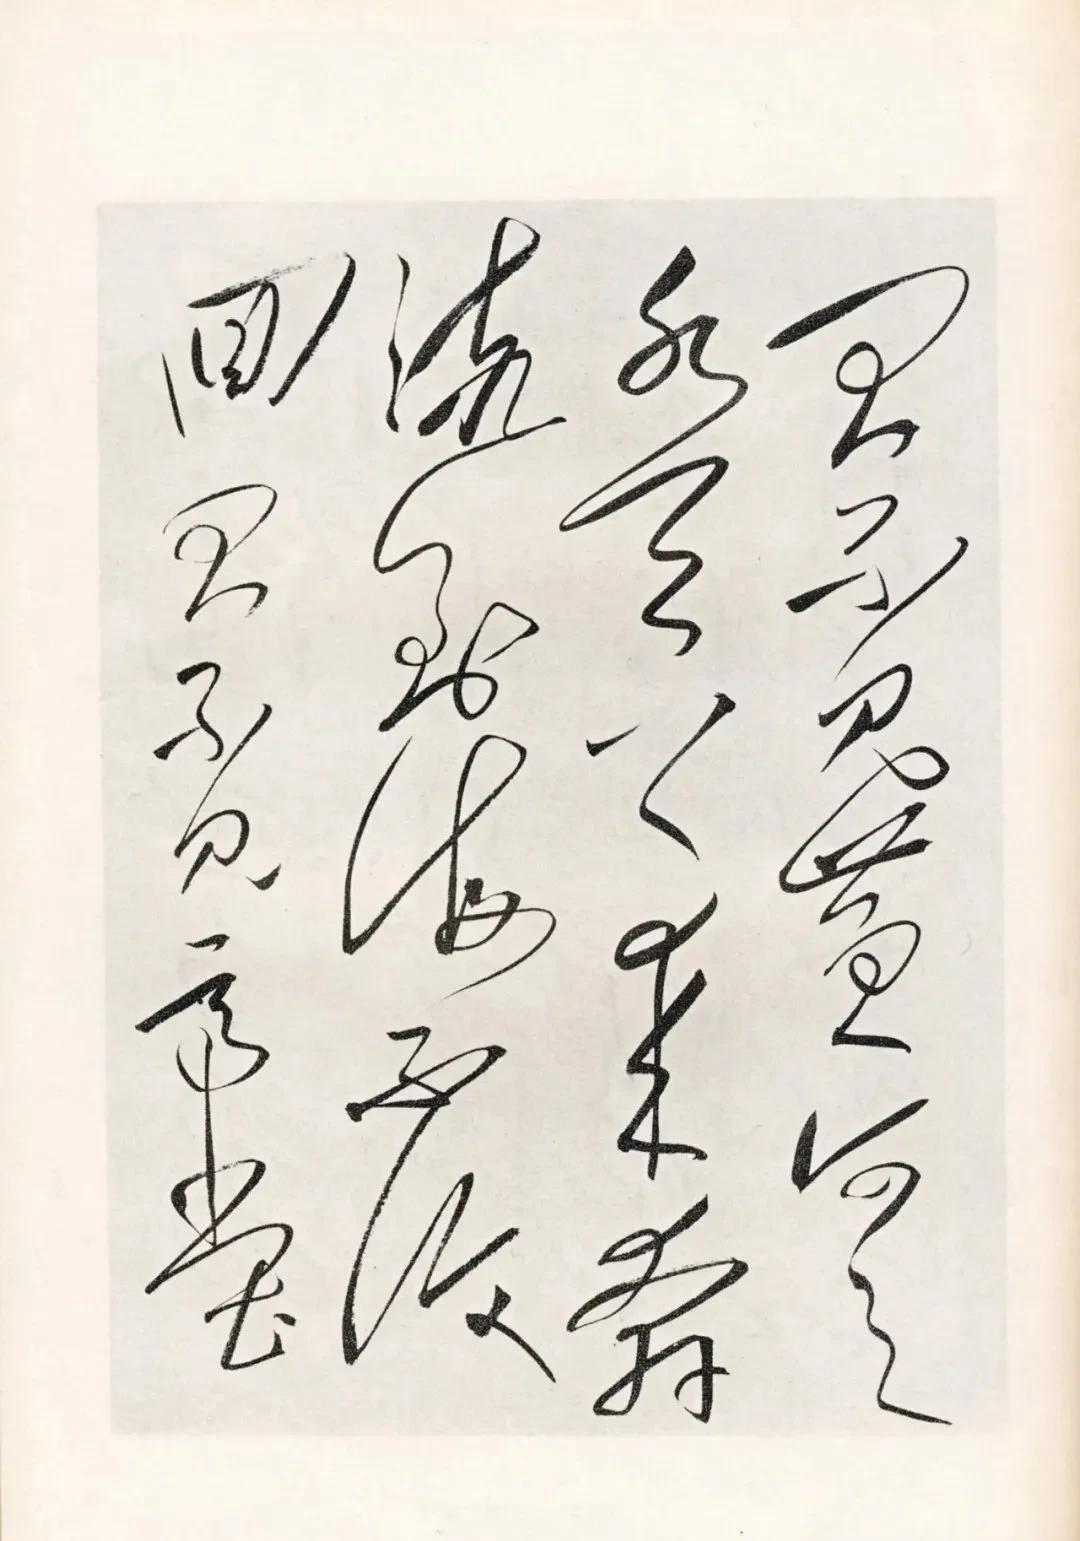 君不見黄河之
水天上来奔
流到海不復
回君不見高堂